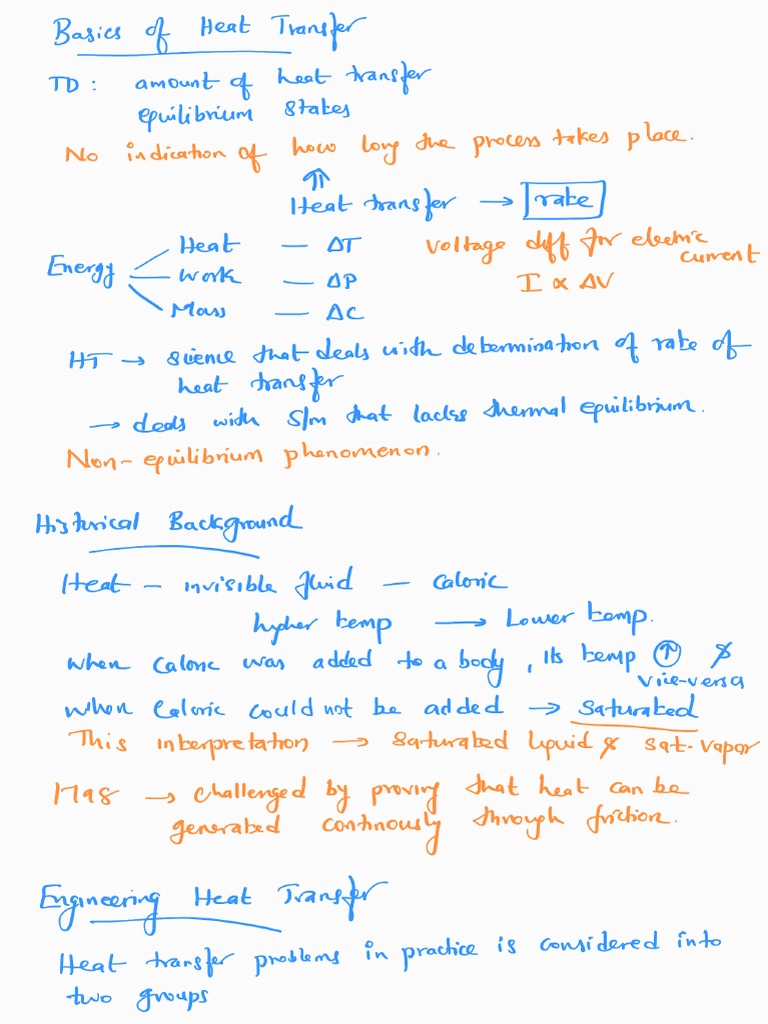 Basics of Heat Transfer
TD : amount of heat transfer
equilibrium states
No indication of how long the process takes place.
⇑
Heat transfer → rate
Energy
Heat — ΔT
Work — ΔP
Mass — ΔC
Voltage diff for electric
current
I ∝ ΔV
HT → science that deals with determination of rate of
heat transfer
→ deals with s/m that lacks thermal equilibrium.
Non-equilibrium phenomenon.
Historical Background
Heat – invisible fluid — caloric
higher temp → Lower temp.
when caloric was added to a body, its temp ↑ &
vice-versa
when caloric could not be added → saturated
This interpretation → saturated liquid & sat-vapor
1798 → challenged by proving that heat can be
generated continously through friction.
Engineering Heat Transfer
Heat transfer problems in practice is considered into
two groups